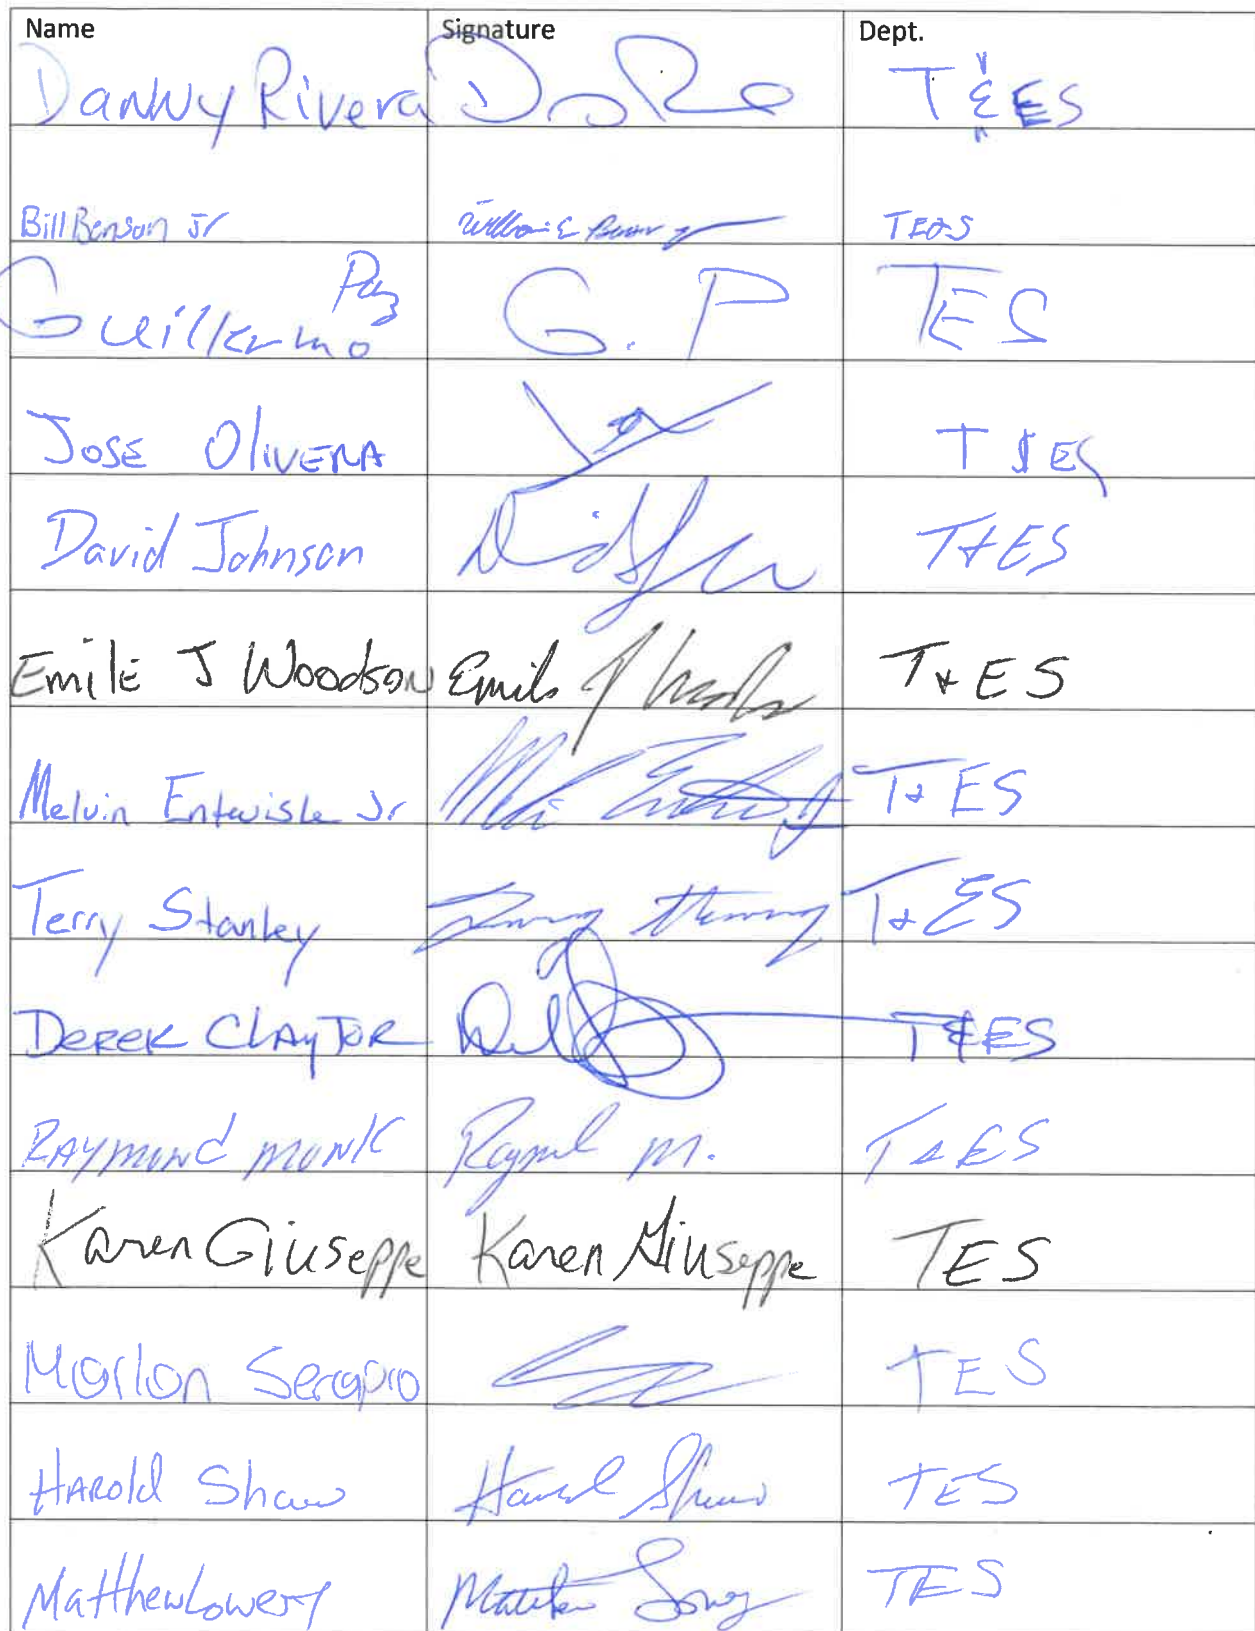 Name Signature Dept.
Danny Rivera T & ES
Bill Benson Jr William E TE&S
Guillermo Paz G. P TES
Jose Olivera T & ES
David Johnson T+ES
Emile J Woodson Emile J T+ES
Melvin Entwisle Jr T+ES
Terry Stanley T+ES
Derek Claytor T&ES
Raymond Monk M. T&ES
Karen Giuseppe Karen Giuseppe TES
Marlon Serapio TES
Harold Shaw Harold Shaw TES
Matthew Lowery Matthew Lowery TES